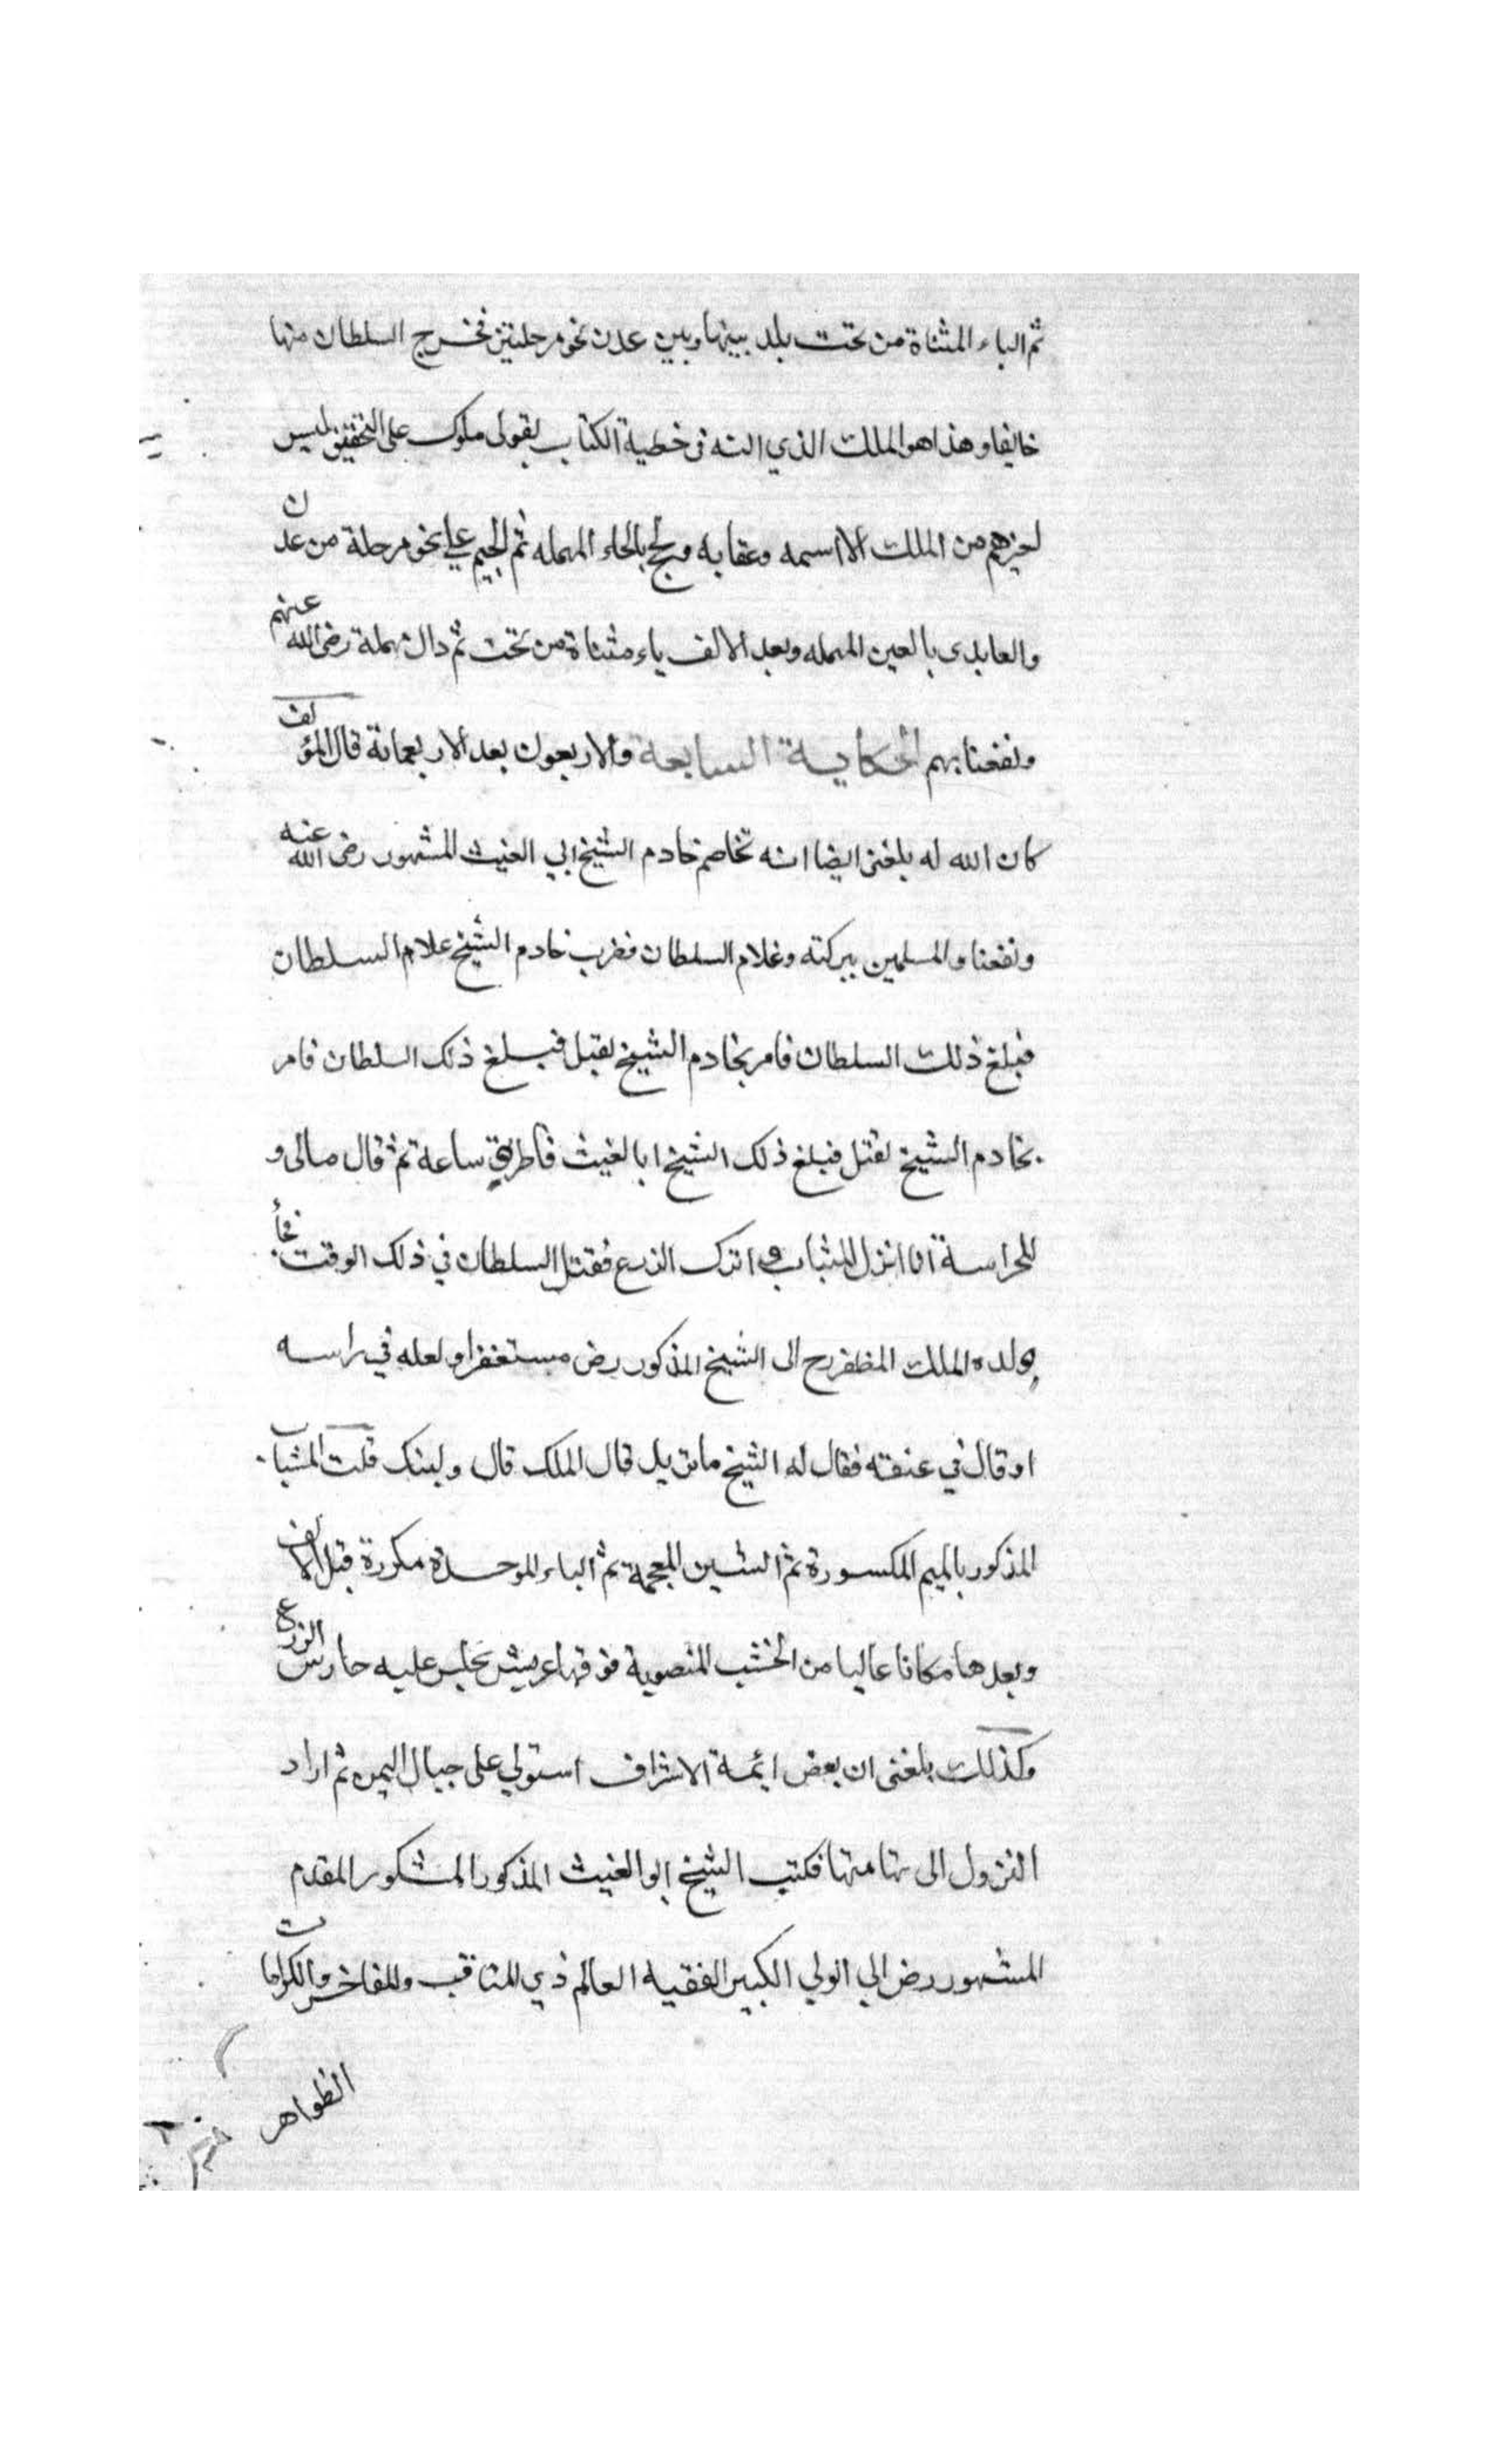 ثم الياء المثناة من تحت بلد بينها وبين عدن نحو مرحلتين فخرج السلطان منها
خايفا وهذا هو الملك الذي الته في خطبة الكتاب بقولي ملوك على التحقيق ليس
لغيرهم من الملك الا اسمه وعقابه ولحج بالحاء المهمله ثم الجيم علي نحو مرحلة من عدن
والعايدى بالعين المهمله وبعد الالف ياء مثناة من تحت ثم دال مهملة رضى الله عنهم
ونفعنا بهم الحكاية السابعة والاربعون بعد الاربعمائة قال المؤلف
كان الله له بلغنى ايضا انه تخاصم خادم الشيخ ابي الغيث المشهور رضى الله عنه
ونفعنا والمسلمين ببركته وغلام السلطان فضرب خادم الشيخ غلام السلطان
فبلغ ذلك السلطان فامر بخادم الشيخ لقتل فبلغ ذلك السلطان فامر
بخادم الشيخ لقتل فبلغ ذلك الشيخ ابا الغيث فاطرق ساعة ثم قال مالى و
للحراسة انا انزل المشباب واترك الزرع فقتل السلطان في ذلك الوقت فجأ
ولده الملك المظفر رح الى الشيخ المذكور رض مستغفرا ولعله في راسه
او قال في عنقه فقال له الشيخ ما تريد قال الملك قال وليتك قلت المشباب
المذكور بالميم المكسورة ثم الشين المعجمة ثم الباء الموحدة مكررة قبل الالف
وبعدها مكانا عاليا من الخشب المنصوبة فوقها عريش يجلس عليه حارس الزرع
وكذلك بلغنى ان بعض ايمة الاشراف استولي على جبال اليمن ثم اراد
النزول الى تهامتها فكتب الشيخ ابو الغيث المذكور المشكور المقدم
المشهور رض الي الولي الكبير الفقيه العالم ذي المناقب والمفاخر والكرامات
الظواهر